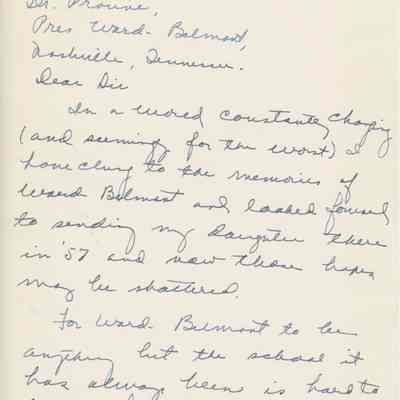 Dr. Provine,
Pres Ward-Belmont,
Nashville, Tennessee.
Dear Sir
In a world constantly changing
(and seemingly for the worst) I
have clung to the memories of
Ward Belmont and looked forward
to sending my daughter there
in '57 and now those hopes
may be shattered.
For Ward-Belmont to be
anything but the school it
has always been is hard to